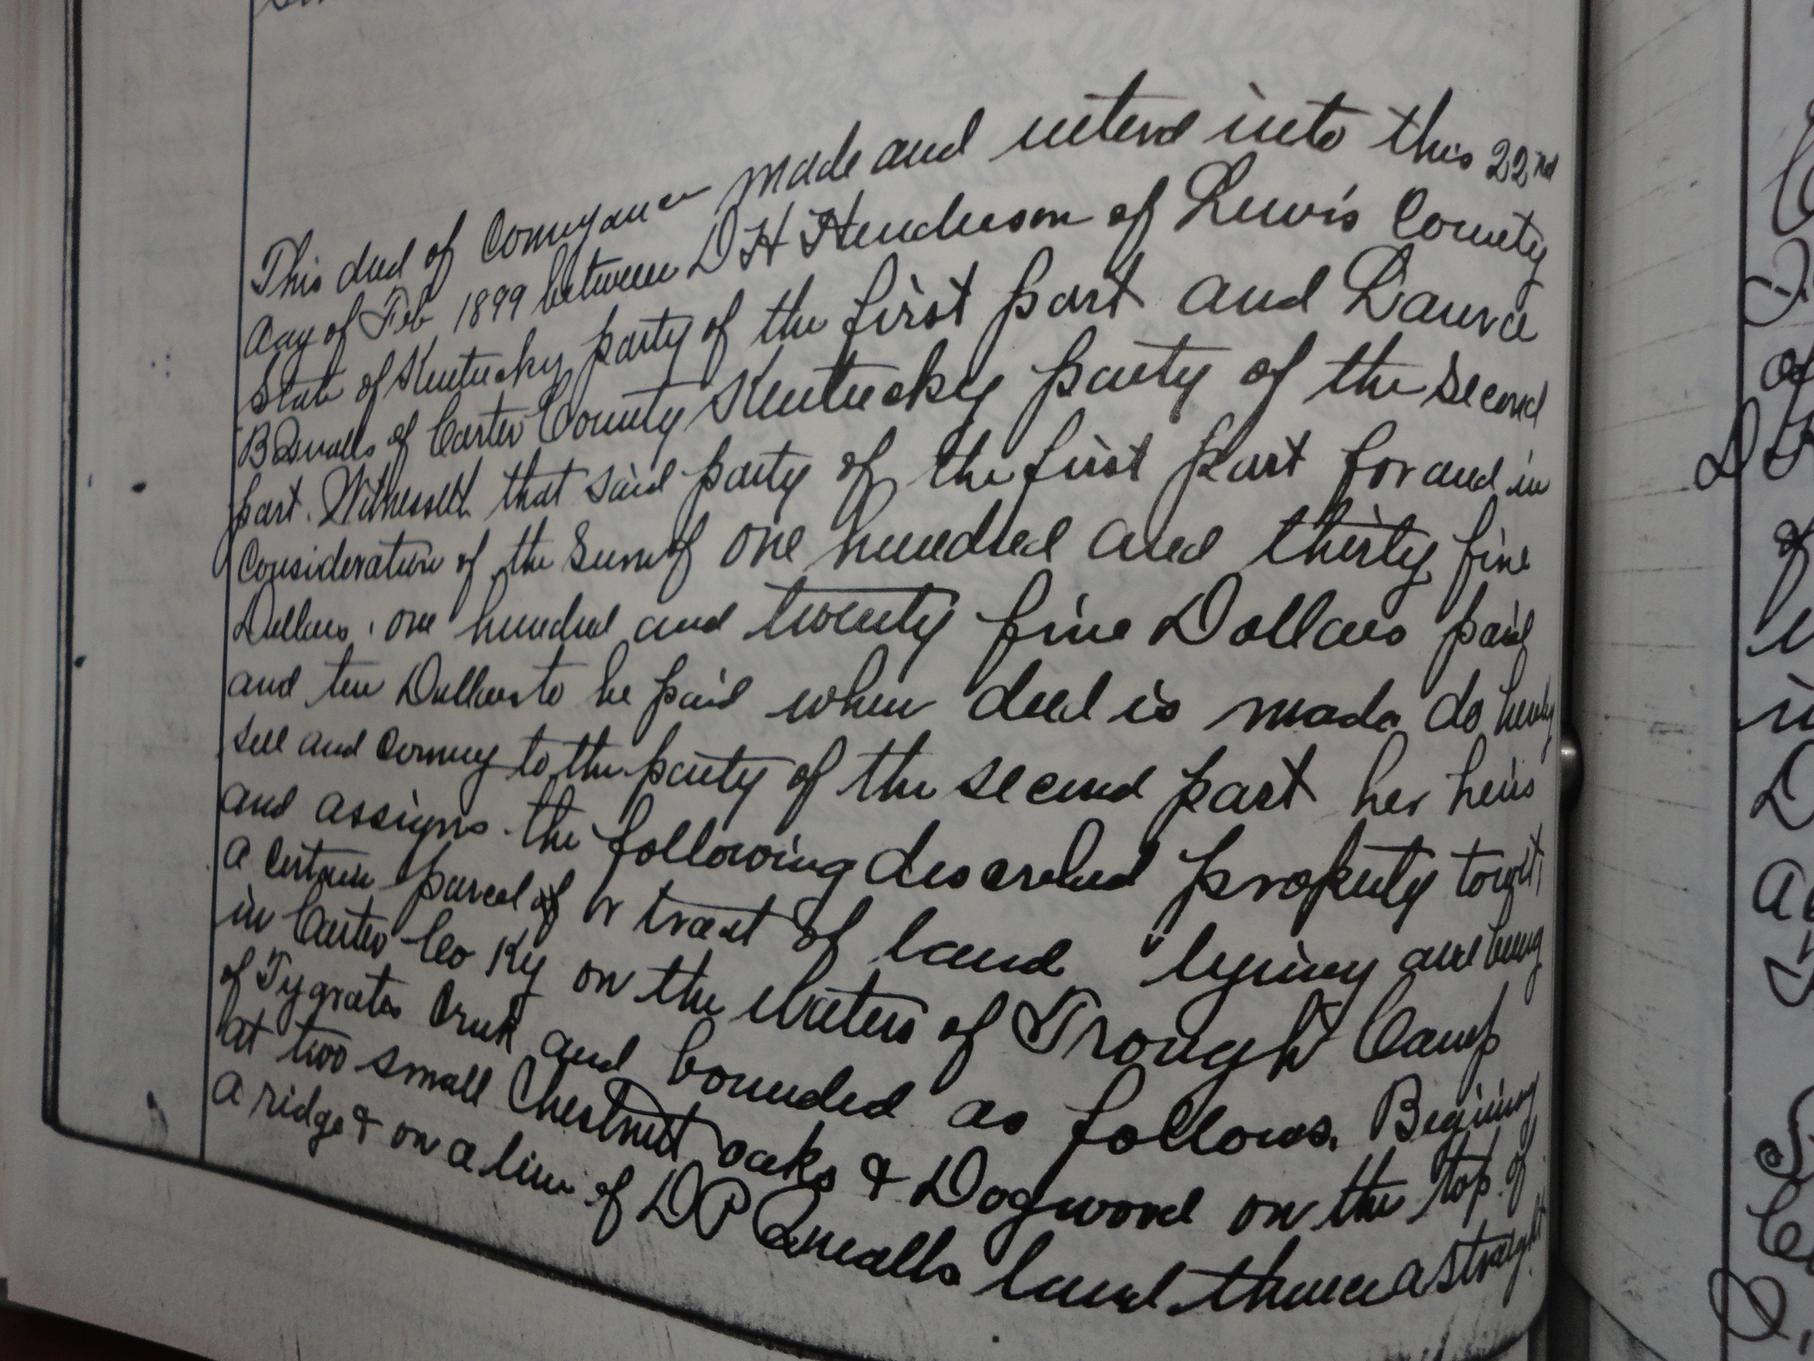 This deed of Conveyance made and interd into this 22nd
day of Feb 1899 between D H Henderson of Lewis County
State of Kentucky party of the first part and Laura
B Qualls of Carter County Kentucky party of the second
part. Witnesseth that said party of the first part for and in
Consideration of the Sum of one hundred and thirty five
Dollars. one hundred and twenty five Dollars paid
and ten Dollars to be paid when deed is made do hereby
sell and convey to the party of the second part her heirs
and assigns the following described property towit,
a certain parcel of or tract of land lyiny and being
in Carter Co Ky on the Waters of Trough Camp
of Tygrats Creek and bounded as follows. Begining
at two small Chestnut oaks & Dogwood on the top of
a ridge & on a line of D P Qualls land thence a straight